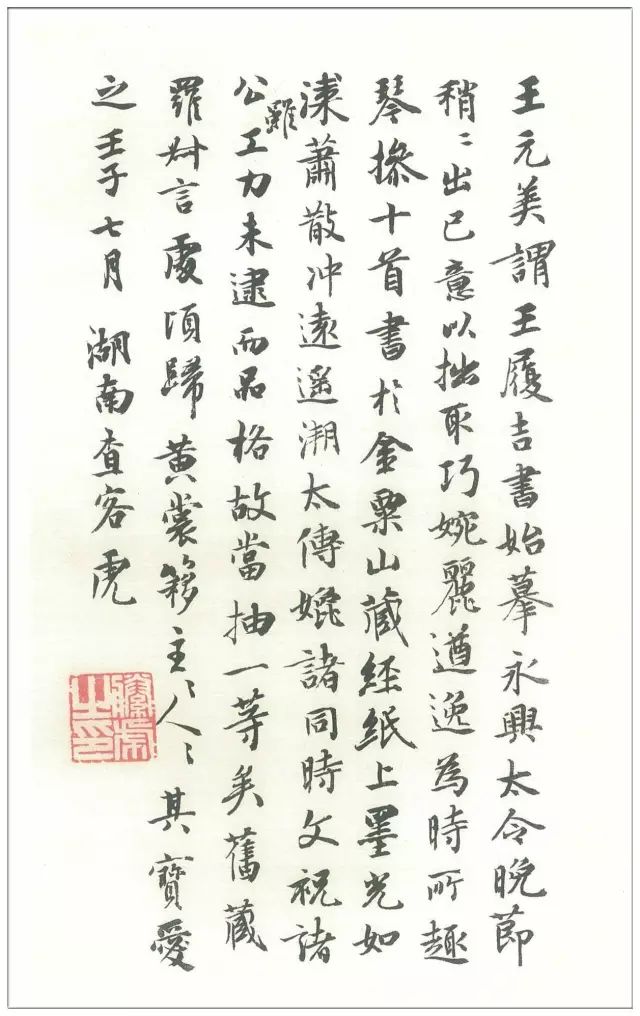 王元美謂王履吉書始摹永興太令晚節
稍〻出己意以拙取巧婉麗遒逸為時所趣
琴操十首書於金粟山藏經紙上墨光如
漆蕭散冲遠遥溯太傅媲諸同時文祝諸
公雖工力未逮而品格故當抽一等矣舊藏
羅叔言處頃歸黃裳簃主〻人〻其寶愛
之壬子七月 湖南查客虎